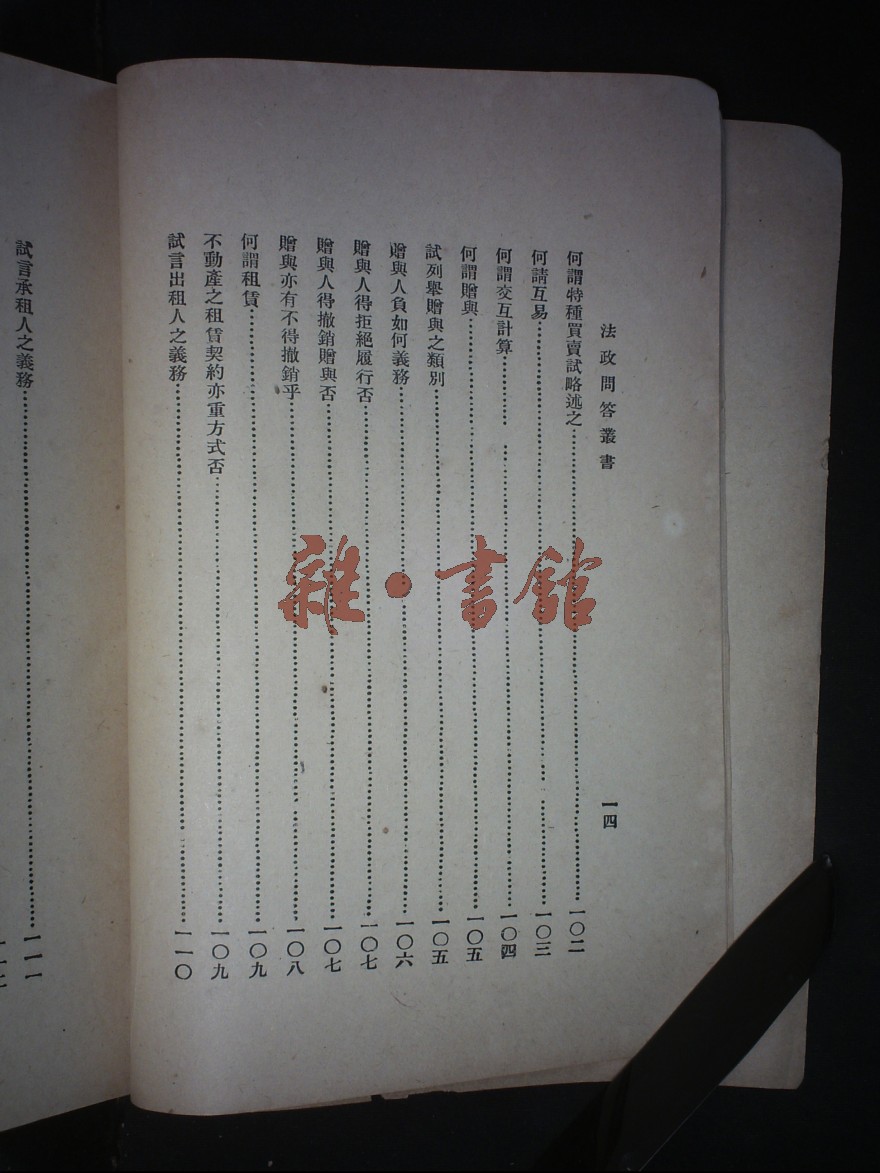 法政問答叢書
一四
何謂特種買賣試略述之……一〇二
何請互易……一〇三
何謂交互計算……一〇四
何謂贈與……一〇五
試列舉贈與之類別……一〇五
贈與人負如何義務……一〇六
贈與人得拒絕履行否……一〇七
贈與人得撤銷贈與否……一〇七
贈與亦有不得撤銷乎……一〇八
何謂租賃……一〇九
不動產之租賃契約亦重方式否……一〇九
試言出租人之義務……一一〇
試言承租人之義務……一一一
雜·書館